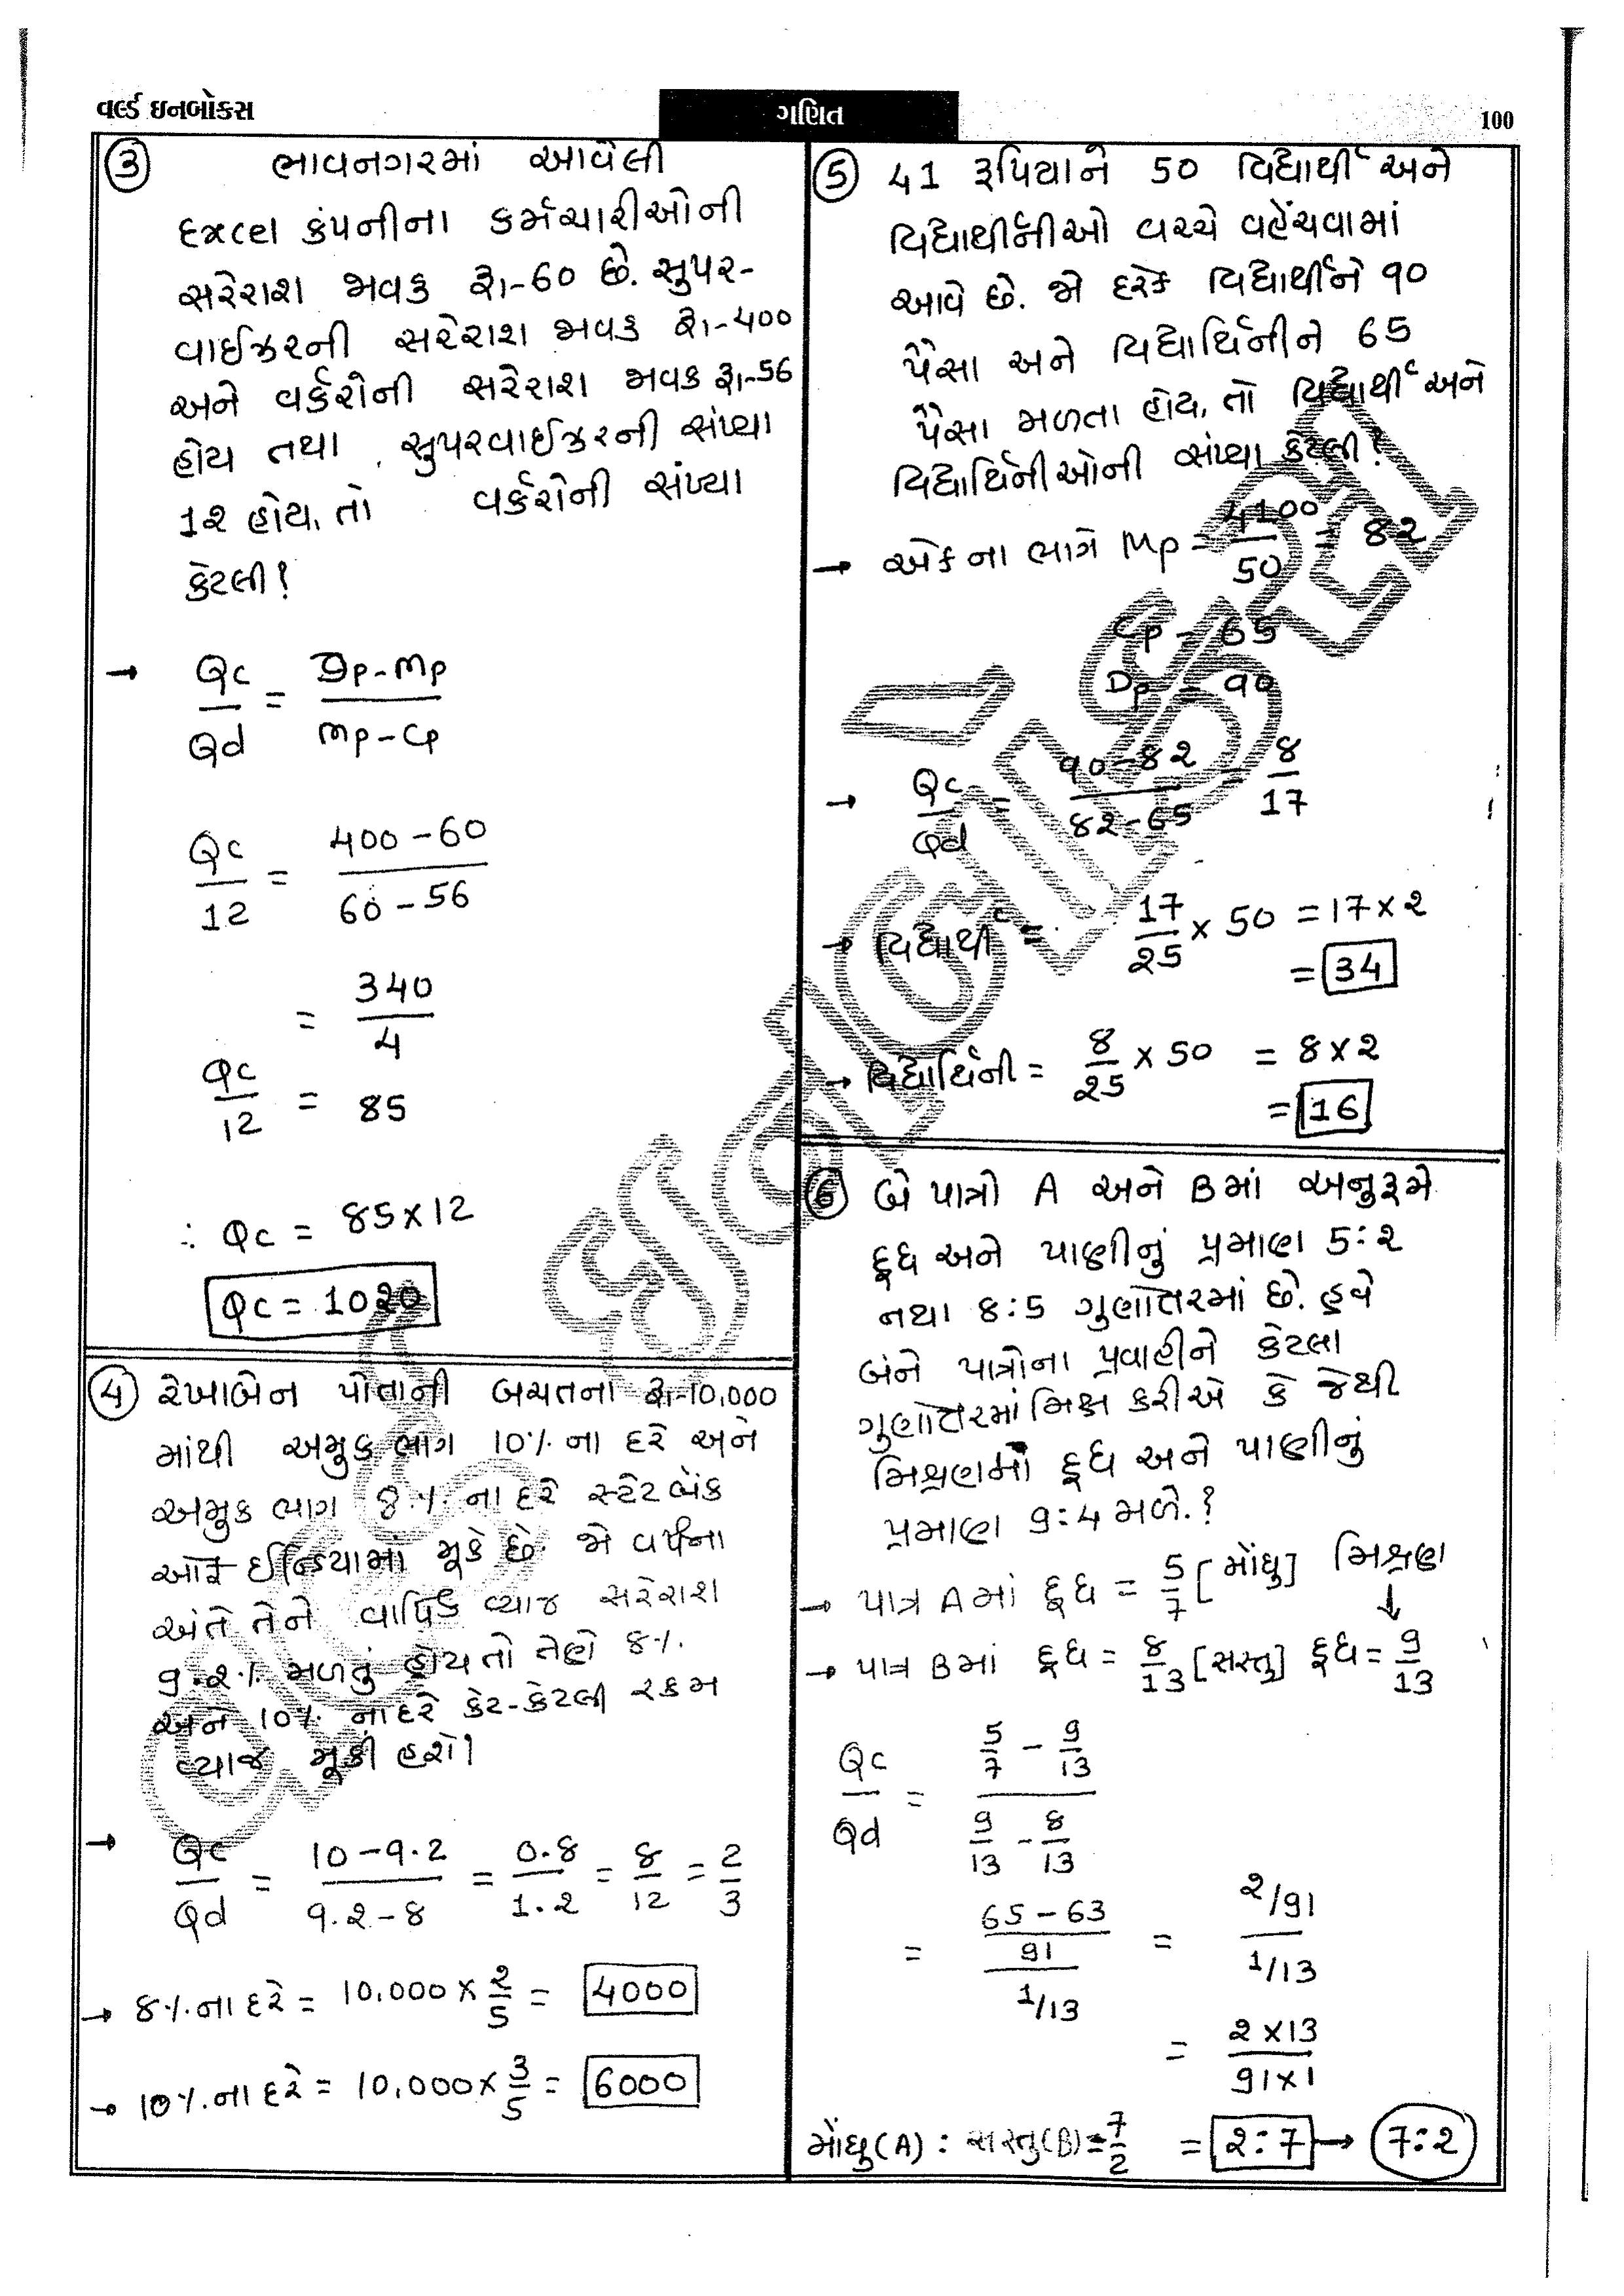 વર્લ્ડ ઇનબોક્સ
ગણિત
100
③ ભાવનગરમાં આવેલી
Excel કંપનીના કર્મચારીઓની
સરેરાશ આવક રૂા-60 છે. સુપર-
વાઈઝરની સરેરાશ આવક રૂા-400
અને વર્કરોની સરેરાશ આવક રૂા-56
હોય તથા સુપરવાઈઝરની સંખ્યા
12 હોય, તો વર્કરોની સંખ્યા
કેટલી?
→ Qc/Qd = Dp-Mp / Mp-Cp
Qc/12 = 400-60 / 60-56
= 340/4
Qc/12 = 85
∴ Qc = 85×12
Qc = 1020
④ રેખાબેન પોતાની બચતના રૂા-10,000
માંથી અમુક ભાગ 10% ના દરે અને
અમુક ભાગ 8% ના દરે સ્ટેટ બેંક
ઓફ ઈન્ડિયામાં મૂકે છે. જો વર્ષના
અંતે તેને વાર્ષિક વ્યાજ સરેરાશ
9.2% મળતું હોય તો તેણે 8%
અને 10% ના દરે કેટ-કેટલી રકમ
વ્યાજે મૂકી હશે?
→ Qc/Qd = 10-9.2 / 9.2-8 = 0.8/1.2 = 8/12 = 2/3
→ 8% ના દરે = 10,000 × 2/5 = 4000
→ 10% ના દરે = 10,000 × 3/5 = 6000
⑤ 41 રૂપિયાને 50 વિદ્યાર્થી અને
વિદ્યાર્થીનીઓ વચ્ચે વહેંચવામાં
આવે છે. જો દરેક વિદ્યાર્થીને 90
પૈસા અને વિદ્યાર્થિનીને 65
પૈસા મળતા હોય, તો વિદ્યાર્થી અને
વિદ્યાર્થિનીઓની સંખ્યા કેટલી?
→ એકના ભાગે Mp = 4100/50 = 82
Cp = 65
Dp = 90
→ Qc/Qd = 90-82 / 82-65 = 8/17
→ વિદ્યાર્થી = 17/25 × 50 = 17×2
= 34
→ વિદ્યાર્થિની = 8/25 × 50 = 8×2
= 16
⑥ બે પાત્રો A અને B માં અનુક્રમે
દૂધ અને પાણીનું પ્રમાણ 5:2
તથા 8:5 ગુણોત્તરમાં છે. હવે
બંને પાત્રોના પ્રવાહીને કેટલા
ગુણોત્તરમાં મિક્ષ કરીએ કે જેથી
મિશ્રણમાં દૂધ અને પાણીનું
પ્રમાણ 9:4 મળે.?
→ પાત્ર A માં દૂધ = 5/7 [મોંઘુ] મિશ્રણ
↓
→ પાત્ર B માં દૂધ = 8/13 [સસ્તુ] દૂધ = 9/13
Qc/Qd = 5/7 - 9/13 / 9/13 - 8/13
= 65-63/91 / 1/13 = 2/91 / 1/13
= 2×13 / 91×1
મોંઘુ(A) : સસ્તુ(B) = 7/2 = 2:7 → 7:2